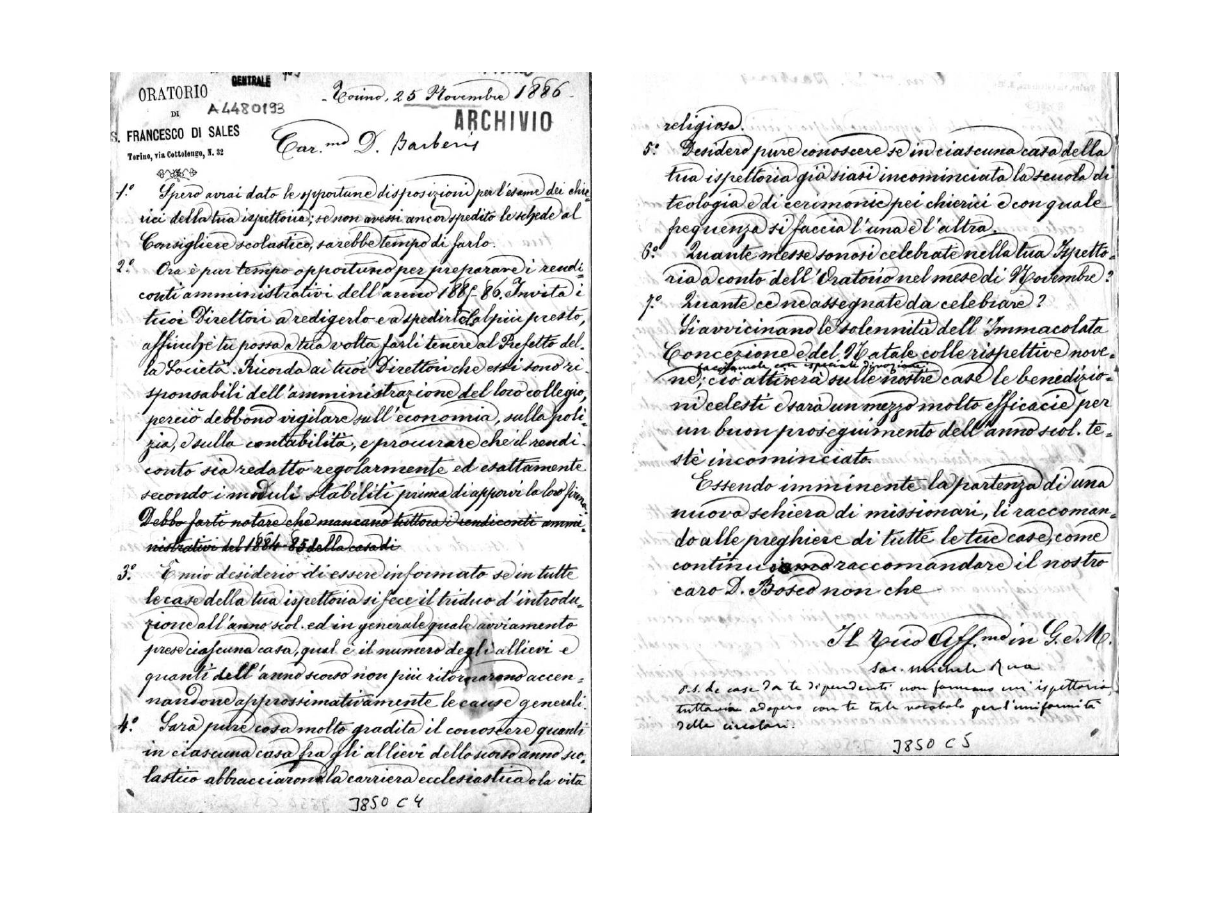 CENTRALE
ORATORIO
DI
S. FRANCESCO DI SALES
Torino, via Cottolengo, N. 32
A4480193
ARCHIVIO
Torino, 25 Novembre 1886
Car.mo D. Barberis
1.° Spero avrai dato le opportune disposizioni per l'esame dei chie-
rici della tua ispettoria; se non avessi ancor spedito le schede al
Consigliere scolastico, sarebbe tempo di farlo.
2.° Ora è pur tempo opportuno per preparare i rendi-
conti amministrativi dell'anno 1885-86. Invita i
tuoi Direttori a redigerlo e a spedirtelo al più presto,
affinché tu possa a tua volta farli tenere al Prefetto del-
la Società. Ricorda ai tuoi Direttori che essi sono ri-
sponsabili dell'amministrazione del loro collegio,
perciò debbono vigilare sull'economia, sulla poli-
zia, e sulla contabilità, e procurare che il rendi-
conto sia redatto regolarmente ed esattamente
secondo i moduli stabiliti prima di apporvi la loro firma.
Debbo farti notare che mancano tuttora i rendiconti ammi-
nistrativi del 1884-85 della casa di
3.° È mio desiderio di essere informato se in tutte
le case della tua ispettoria si fece il triduo d'introdu-
zione all'anno scol. ed in generale quale avviamento
prese ciascuna casa, qual è il numero degli allievi e
quanti dell'anno scorso non più ritornarono accen-
nandone approssimativamente le cause generali.
4.° Sarà pure cosa molto gradita il conoscere quanti
in ciascuna casa fra gli allievi dello scorso anno sco-
lastico abbracciarono la carriera ecclesiastica o la vita
J850 C4
religiosa.
5.° Desidero pure conoscere se in ciascuna casa della
tua ispettoria già siasi incominciata la scuola di
teologia e di cerimonie pei chierici e con quale
frequenza si faccia l'una e l'altra.
6.° Quante messe sonosi celebrate nella tua Ispetto-
ria a conto dell'Oratorio nel mese di Novembre?
7.° Quante ce ne assegnate da celebrare?
Si avvicinano le solennità dell'Immacolata
Concezione e del Natale colle rispettive nove-
facciamole con ispeciale divozione
ne; ciò attirerà sulle nostre case le benedizio-
ni celesti e sarà un mezzo molto efficacie per
un buon proseguimento dell'anno scol. te-
stè incominciato.
Essendo imminente la partenza di una
nuova schiera di missionari, li raccoman-
do alle preghiere di tutte le tue case, come
continuiamo raccomandare il nostro
caro D. Bosco non che
Il tuo Aff.mo in G. e M.
Sac. Michele Rua
P.S. Le case da te dipendenti non formano un'ispettoria,
tuttavia adopero con te tale vocabolo per l'uniformità
delle circolari.
J850 C5